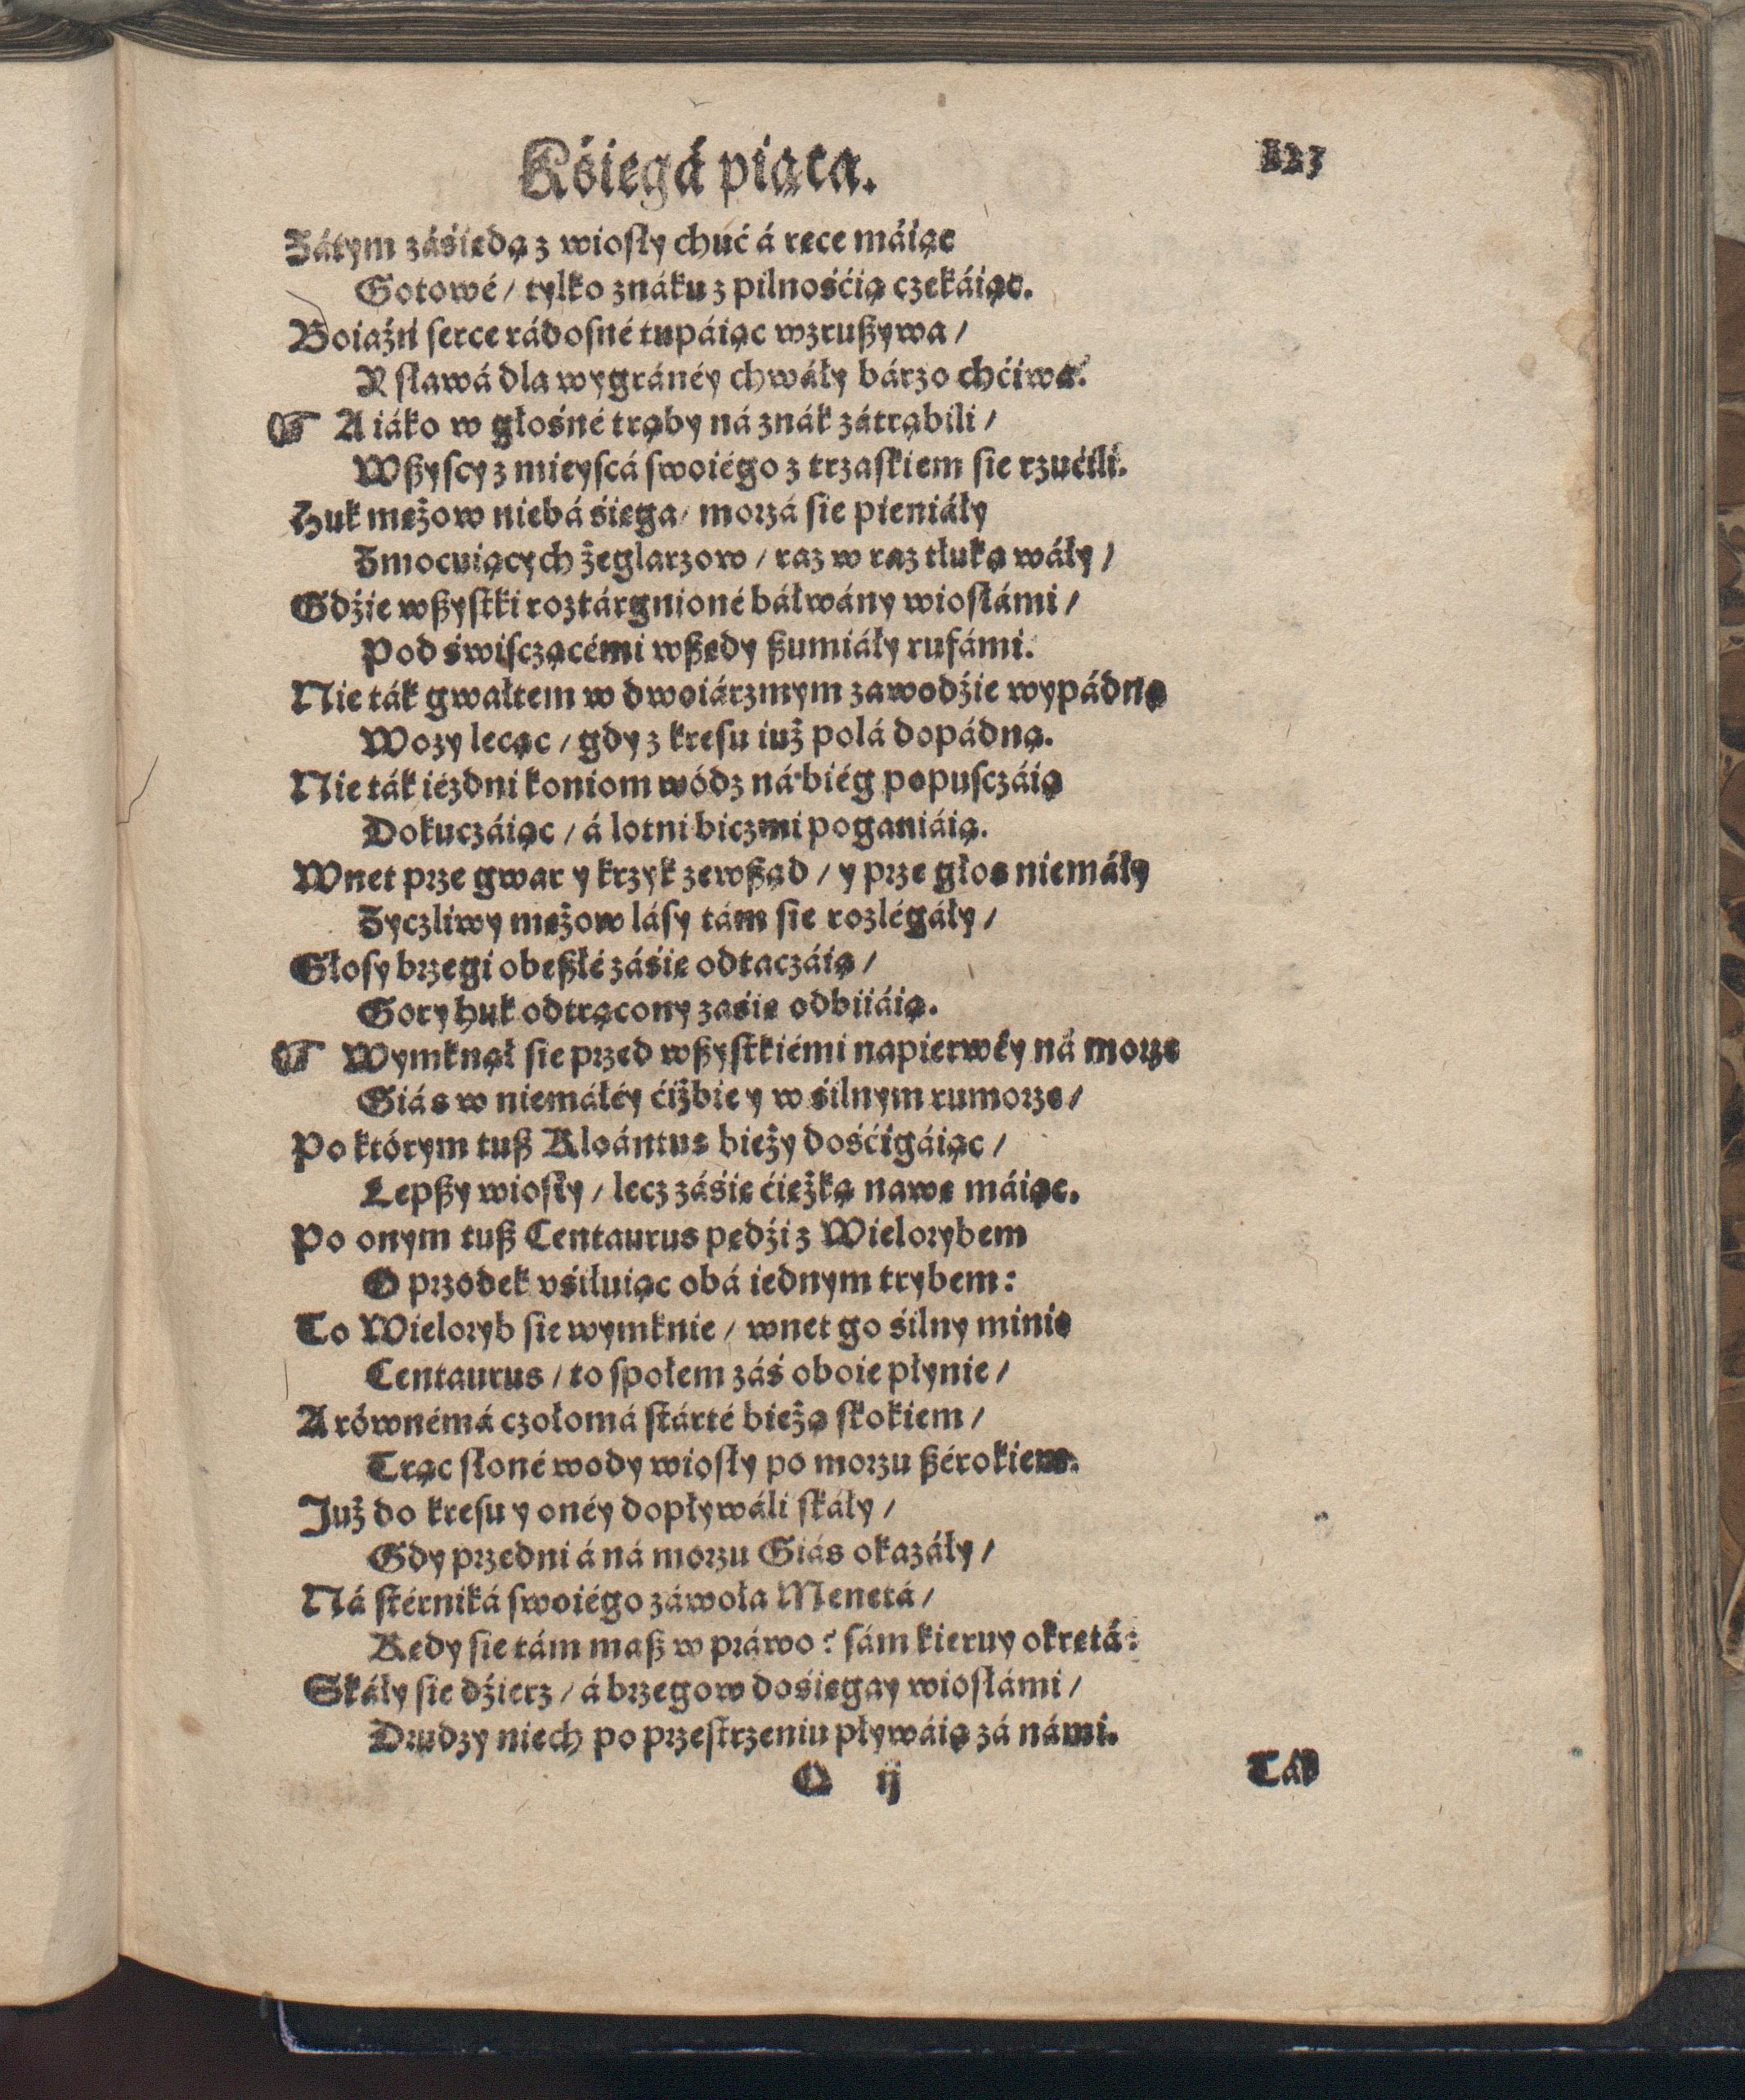 Kśięgá piąta.
123
Zátym záśiędą z wiosły chuć á ręce máiąc
Gotowé / tylko znáku z pilnośćią czekáiąc.
Boiaźń serce rádosné tupáiąc wzrußywa /
Y sławá dla wygránéy chwáły bárzo chćiwa.
☞ A iáko w głośné trąby ná znák zátrąbili /
Wßyscy z mieyscá swoiégo z trzaskiem się rzućili.
Huk mężow niebá śięga / morzá się pieniáły
Zmocuiących żeglarzow / raz w raz tłuką wáły /
Gdźie wßystki roztárgnioné báłwány wiosłámi /
Pod świsczącémi wßędy ßumiáły rufámi.
Nie ták gwałtem w dwoiárzmym zawodźie wypádną
Wozy lecąc / gdy z kresu iuż polá dopádną.
Nie ták iézdni koniom wódz ná biég popusczáią
Dokuczáiąc / á lotni biczmi poganiáią.
Wnet prze gwar y krzyk zewßąd / y prze głos niemáły
Zyczliwy mężow lásy tám się rozlégáły /
Głosy brzegi obeßłé záśię odtaczáią /
Gory huk odtrącony zaśię odbiiáią.
☞ Wymknął się przed wßystkiémi napierwéy ná morze
Giás w niemáłéy ćiżbie y w śilnym rumorze /
Po którym tuß Kloántus bieży dośćigáiąc /
Lepßy wiosły / lecz záśię ćiężką nawę máiąc.
Po onym tuß Centaurus pędźi z Wielorybem
O przodek vśiłuiąc obá iednym trybem:
To Wieloryb się wymknie / wnet go śilny minie
Centaurus / to społem záś oboie płynie /
A równémá czołomá stárté bieżą skokiem /
Trąc słoné wody wiosły po morzu ßérokiem.
Już do kresu y onéy dopływáli skáły /
Gdy przedni á ná morzu Giás okazáły /
Ná stérniká swoiégo záwoła Menetá /
Kędy się tám maß w práwo? sám kieruy okrętá:
Skáły się dźierz / á brzegow dośięgay wiosłámi /
Drudzy niech po przestrzeniu pływáią zá námi.
Q ij
Ták